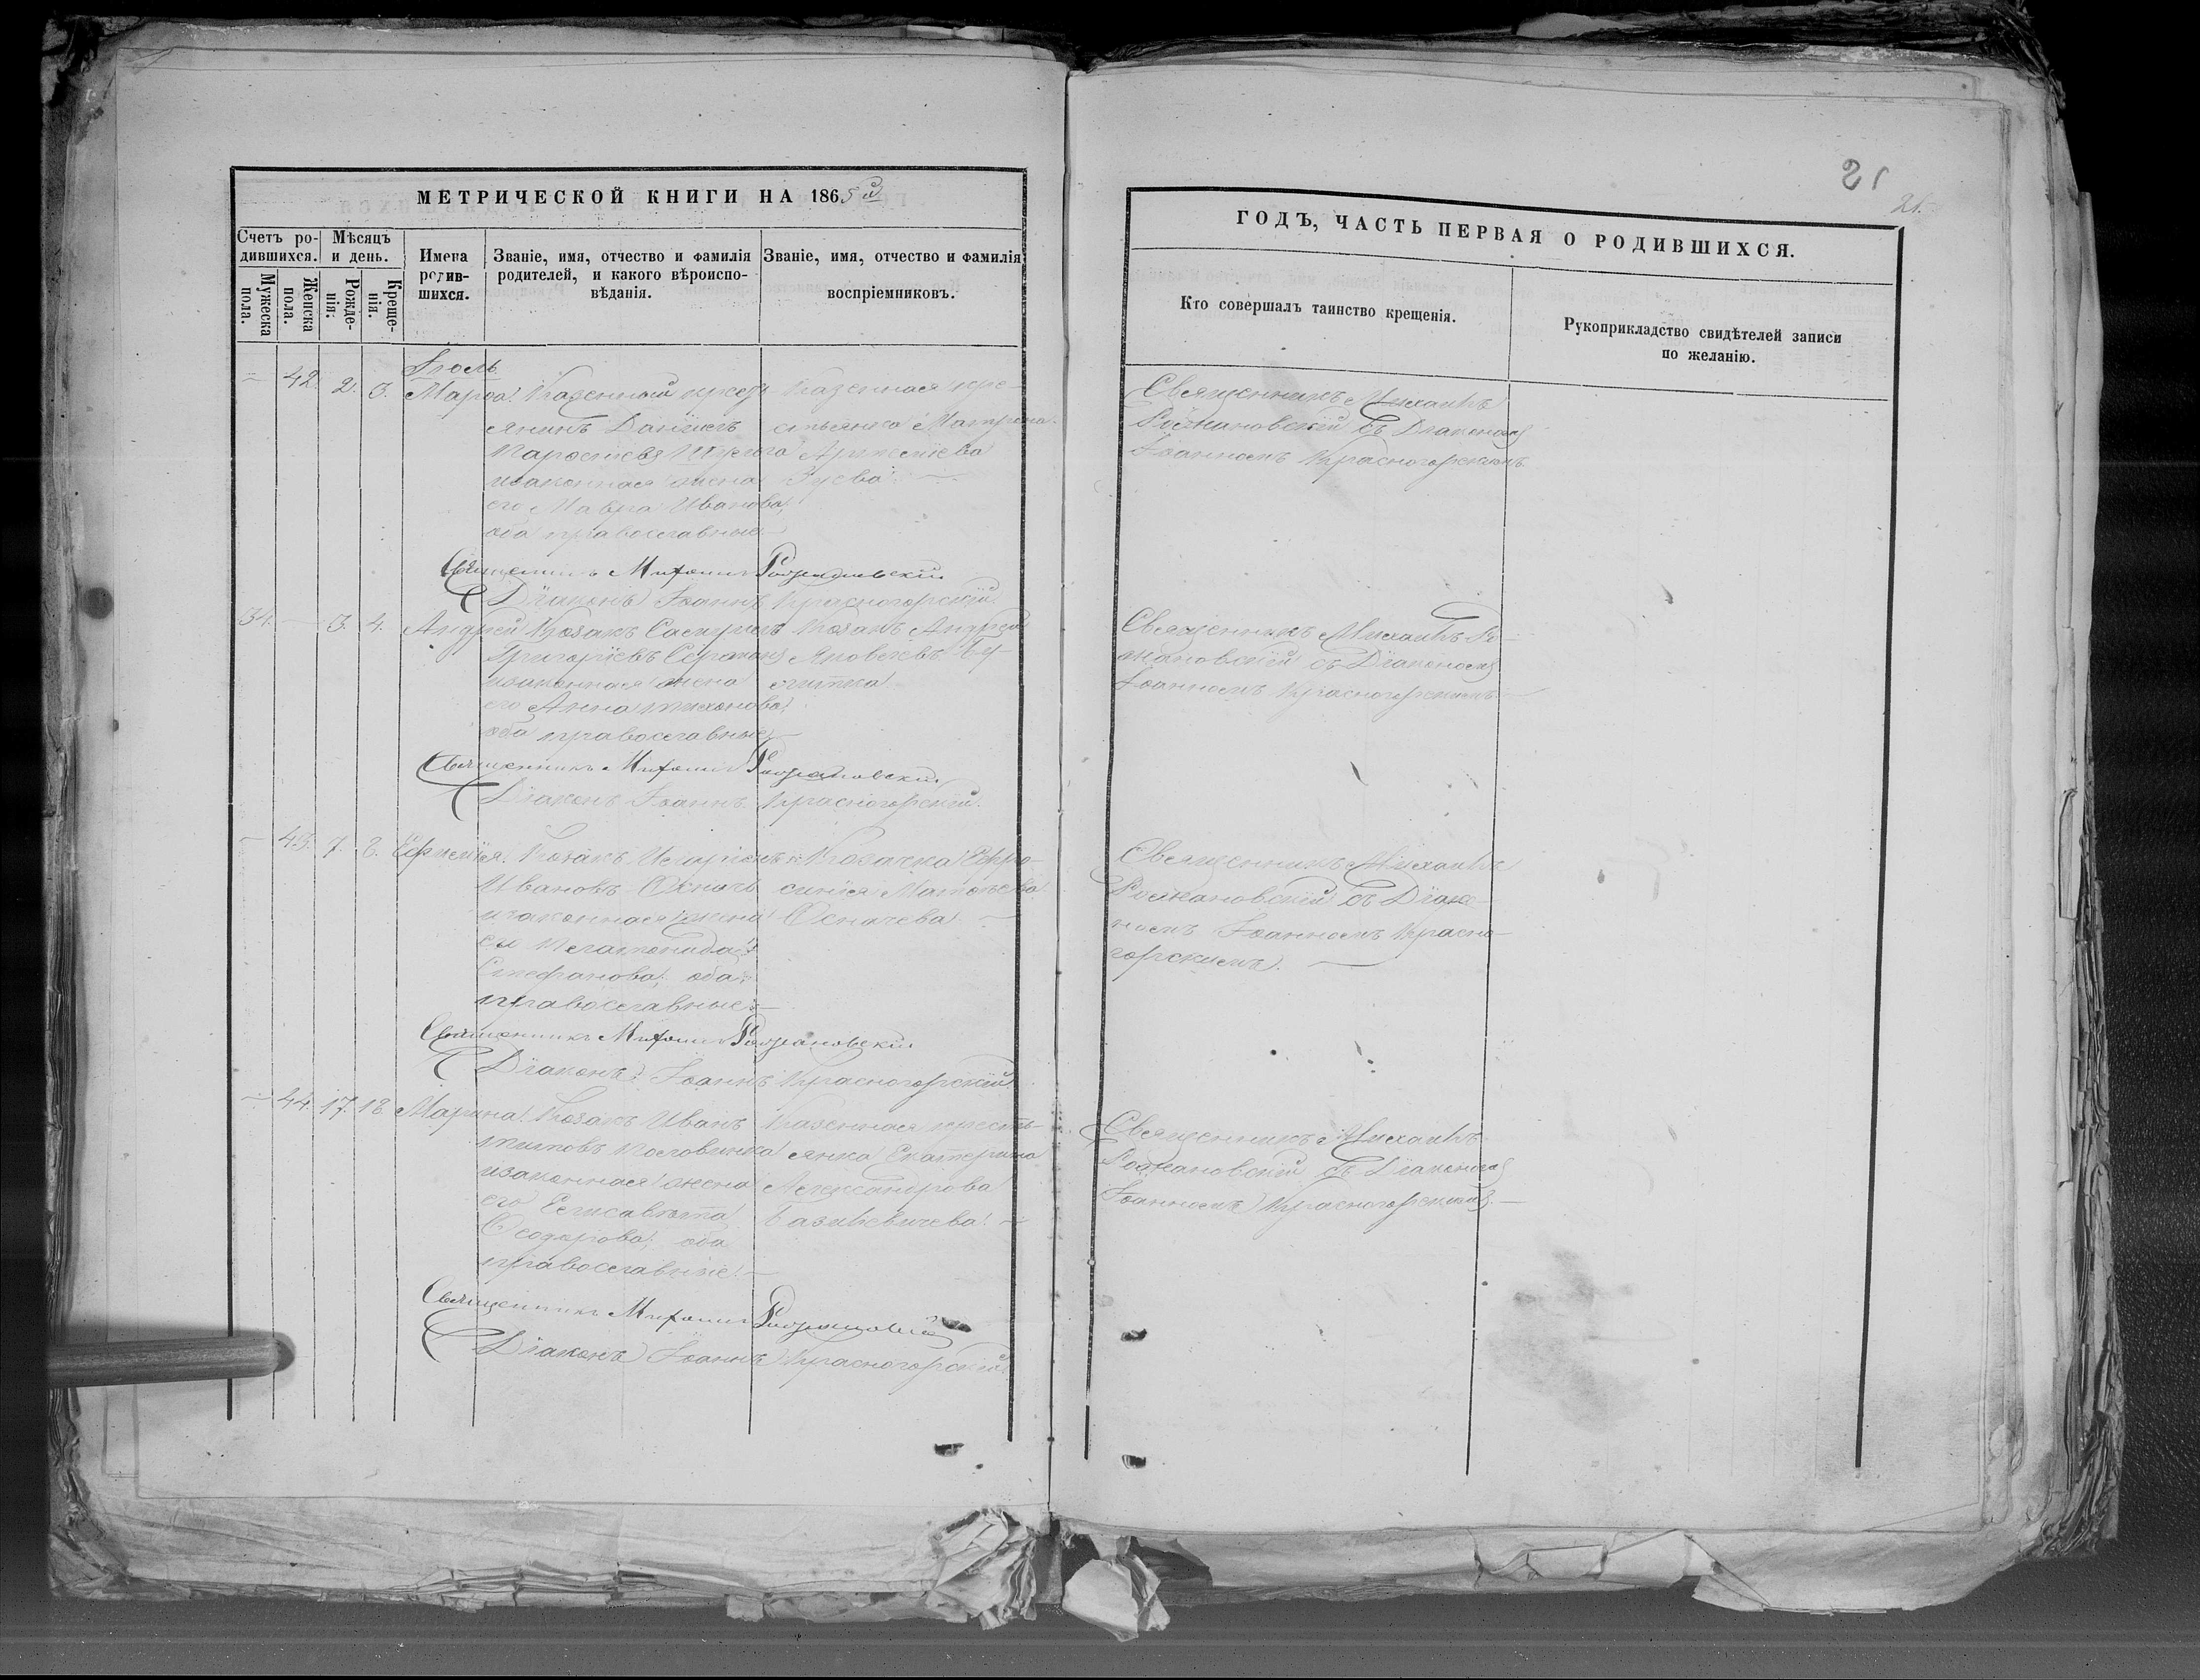 МЕТРИЧЕСКОЙ КНИГИ НА 1865 й
Счетъ ро-
дившихся.
Мѣсяцъ
и день.
Мужеска
пола.
Женска
пола.
Рожде-
нія.
Креще-
нія.
Имена
родив-
шихся.
Званіе, имя, отчество и фамилія
родителей, и какого вѣроиспо-
вѣданія.
Званіе, имя, отчество и фамилія
воспріемниковъ.
Іюль
42. 2. 3. Марѳа. Казенный крест-
янинъ Даніилъ
и законная жена
его Мавра Иванова,
оба православные
Казенная кре-
стьянка Матрона
Зуева.
Священникъ Михаилъ Рожановскій
Діаконъ Іоаннъ Красногорскій
31. 3. 4. Андрей Козакъ
Григоріевъ
и законная жена
его Анна Тихонова,
оба православные
Козакъ Андрей
Яковлевъ
Священникъ Михаилъ Рожановскій
Діаконъ Іоаннъ Красногорскій.
43. 7. 8. Евфимія. Козакъ
Ивановъ
и законная жена
Стефанова, оба
православные
Козачка Евфро-
синія Матвѣева
Осначева
Священникъ Михаилъ Рожановскій
Діаконъ Іоаннъ Красногорскій
44. 17. 18. Марина. Козакъ Иванъ
Титовъ Половинка
и законная жена
его Елисавета
Ѳеодорова, оба
православные.
Казенная кресть-
янка Екатерина
Александрова
Базилевичева.
Священникъ Михаилъ Рожановскій
Діаконъ Іоаннъ Красногорскій
21
21.
ГОДЪ, ЧАСТЬ ПЕРВАЯ О РОДИВШИХСЯ.
Кто совершалъ таинство крещенія.
Рукоприкладство свидѣтелей записи
по желанію.
Священникъ Михаилъ
Рожановскій съ Діакономъ
Іоанномъ Красногорскимъ
Священникъ Михаилъ Ро-
жановскій съ Діакономъ
Іоанномъ Красногорскимъ
Священникъ Михаилъ
Рожановскій съ Діако-
номъ Іоанномъ Красно-
горскимъ.
Священникъ Михаилъ
Рожановскій съ Діакономъ
Іоанномъ Красногорскимъ.